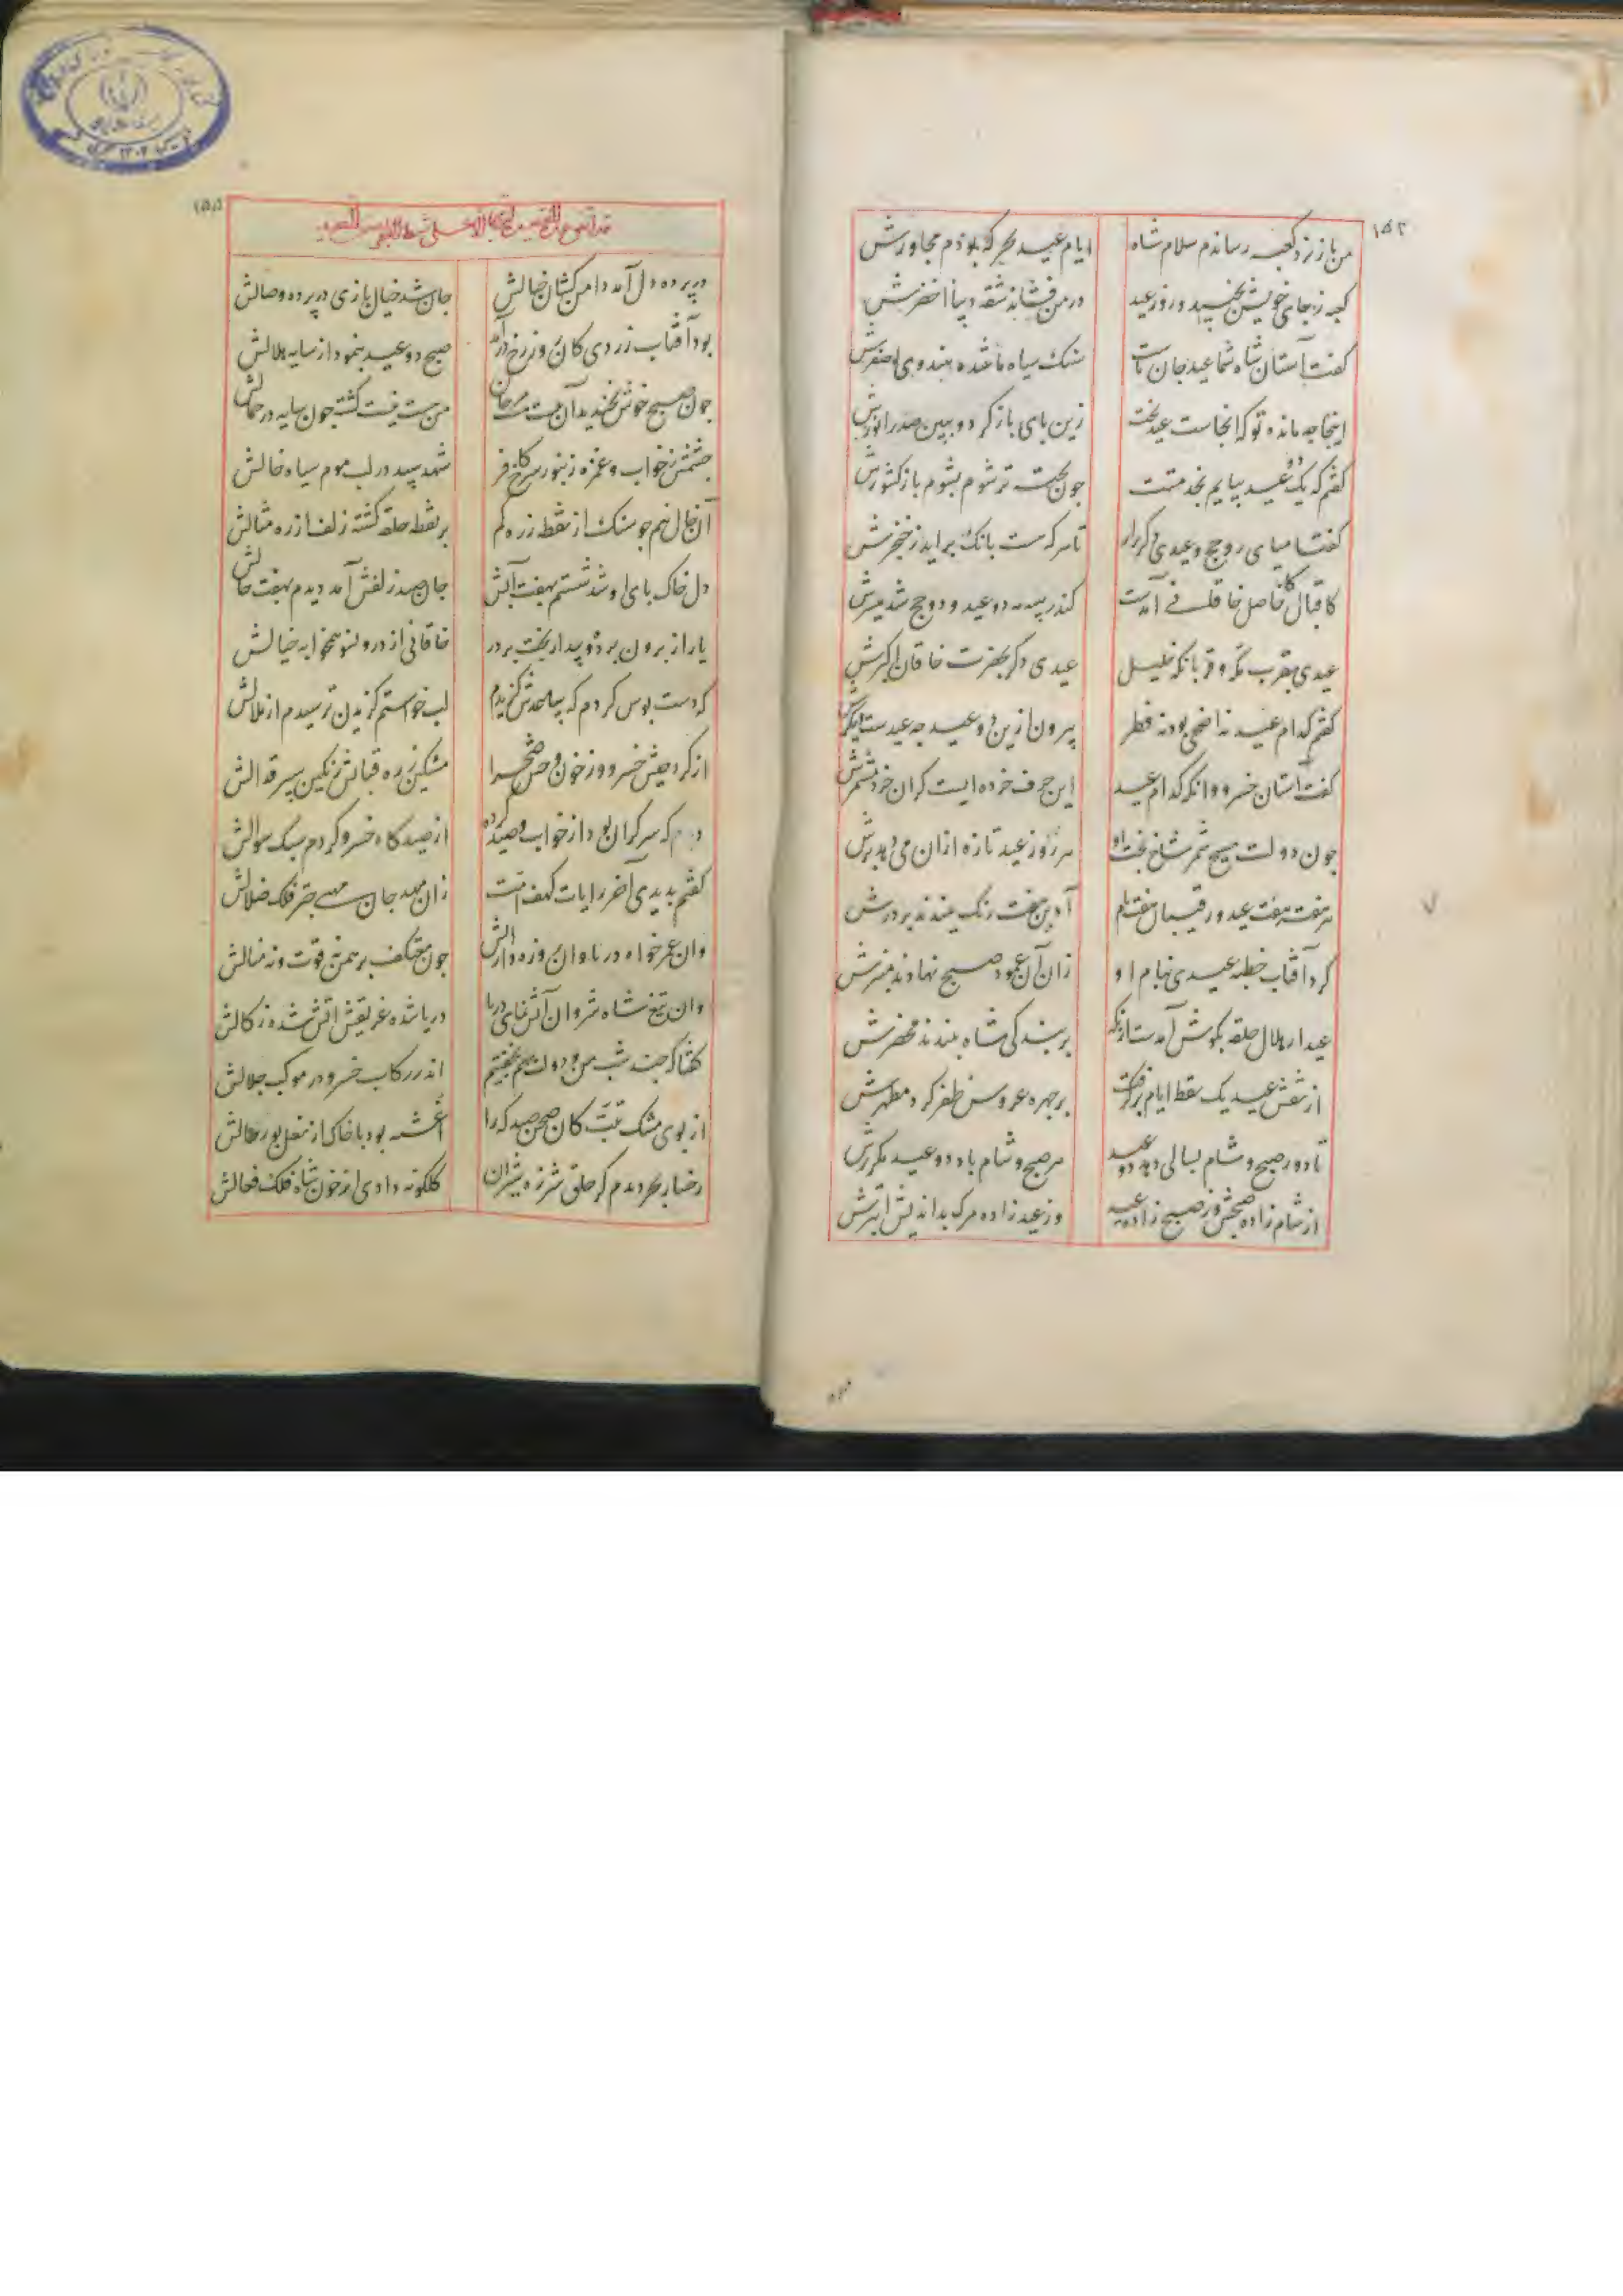 ۱۵۴
من باز زد کعبه رساندم سلام شاه ایام عید نحر که بودم مجاورش
کعبه ز جای خویش بجنبید روز عید در من فشاند شقه دیبا اخضرش
گفت آستان شاه شما عید جان ماست سنک سیاه ما شده هندوی اصفرش
اینجا چه مانده توکه انجاست عید بخت زین بای بازکرد و ببین صدر انورش
کفتم که یک دو عید ببایم بخدمتت جون بخت تر شوم بشوم باز کشورش
کفتا مپای رو حج و عیدی دکر برار تا هر که هست بانک براید ز خنجرش
کاقبال کفا حاصل خاقانی آمدست کندر پسه دو عید و دو حج شد میسرش
عیدی بقرب مکه و قربانکه خلیل عیدی دکر بحضرت خاقان اکبرش
کفتم کدام عید نه اضحی بود نه فطر بیرون ازین دو عید چه عیدست دیکرش
کفت آستان خسرو وانکه کدام عید این حرف خرده ایست کران خرد مشمرش
جون دولت مسیح ثمر شاخ بخت او هر روز عید تازه ازان می دهد برش
هر هفت هفت عید و رقیبان هفت بام آذین هفت رنک ببندند بر درش
کرد آفتاب خطبه عیدی بنام او زان از عمود صبح نهادند منبرش
عید از هلال حلقه بکوش آمدست از آنکه بر بندکی شاه ببندند محضرش
از نقش عید یک نقط ایام برکرفت بر جهره عروس ظفر کرد مظهرش
تا دور صبح و شام بسالی دهد دو عید هر صبح و شام باد دو عید مکررش
از شام زاده صبحش وز صبح زاده عید وز عید زاده مرک بداندیش ابترش
۱۵۵
در پرده دل آمد دامن کشان خیالش جان شد خیال بازی در پرده وصالش
بود آفتاب زردی کان روز رخ درآمد صبح دو عید بنمود از سایه هلالش
جون صبح خوش بخندید آن بیست و هشت مرجان من بیست و نیست کشته جون سایه در جمالش
چشمش ز خواب و غمزه زنبور سرخ کافر شهد سپید در لب موم سیاه خالش
آن خال نیم جو سنک از نقطه زره کم بر نقطه حلقه کشته زلف از زره مثالش
دل خاک بای او شد شستم بهفت آبش جان صید زلفش آمد دیدم بهفت حالش
یار از برون برده بیدار بخت بر در خاقانی از درون سو همخوابه خیالش
که دست بوس کردم که ساعدش کزیدم لب خواستم کزیدن ترسیدم از ملالش
از کرد جیش خسرو وز خون وحش صحرا مشکین زره قبایش رنکین سپر قدالش
دیدم که سرکران بود از خواب و صید کرده از صیدکاه خسرو کردم سبک سوالش
کفتم بدیدی آخر رایات کهف امت زان مهد جان مهدی چتر فلک ظلالش
وان عمر خواه دریا وان روزه دار آتش جون معتکف برهمن نه قوت و نه منالش
وان تیغ شاه شروان آتش نمای دریا دریا شده غریقش آتش شده زکالش
کفتا که چند شب من و دولت بهم نخفتیم اندر رکاب خسرو در موکب جلالش
از بوی مشک تبت کان صحن صیدکه را آغشته بود با خاک از نعل بور و خالش
رخسار بحر دیدم کز حلق شرزه شیران کلکونه دادی از خون شاه فلک فعالش